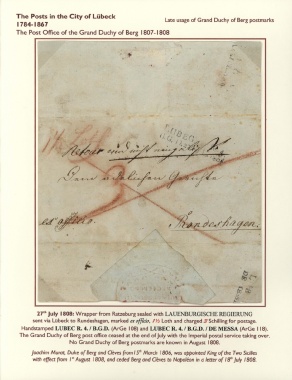 The Posts in the City of Lübeck
1784-1867
Late usage of Grand Duchy of Berg postmarks
The Post Office of the Grand Duchy of Berg 1807-1808
LUBEC
Retour
Dem
ex officio.
Rondeshagen.
27th July 1808: Wrapper from Ratzeburg sealed with LAUENBURGISCHE REGIERUNG
sent via Lübeck to Rundeshagen, marked ex officio, 1½ Loth and charged 3 Schilling for postage.
Handstamped LUBEC R. 4. / B.G.D. (ArGe 108) and LUBEC R. 4. / B.G.D. / DE MESSA (ArGe 118).
The Grand Duchy of Berg post office ceased at the end of July with the imperial postal service taking over.
No Grand Duchy of Berg postmarks are known in August 1808.
Joachim Murat, Duke of Berg and Cleves from 15th March 1806, was appointed King of the Two Sicilies
with effect from 1st August 1808, and ceded Berg and Clèves to Napoléon in a letter of 18th July 1808.